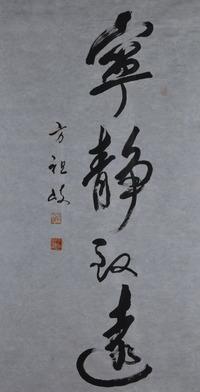 寧靜致遠
方祖岐